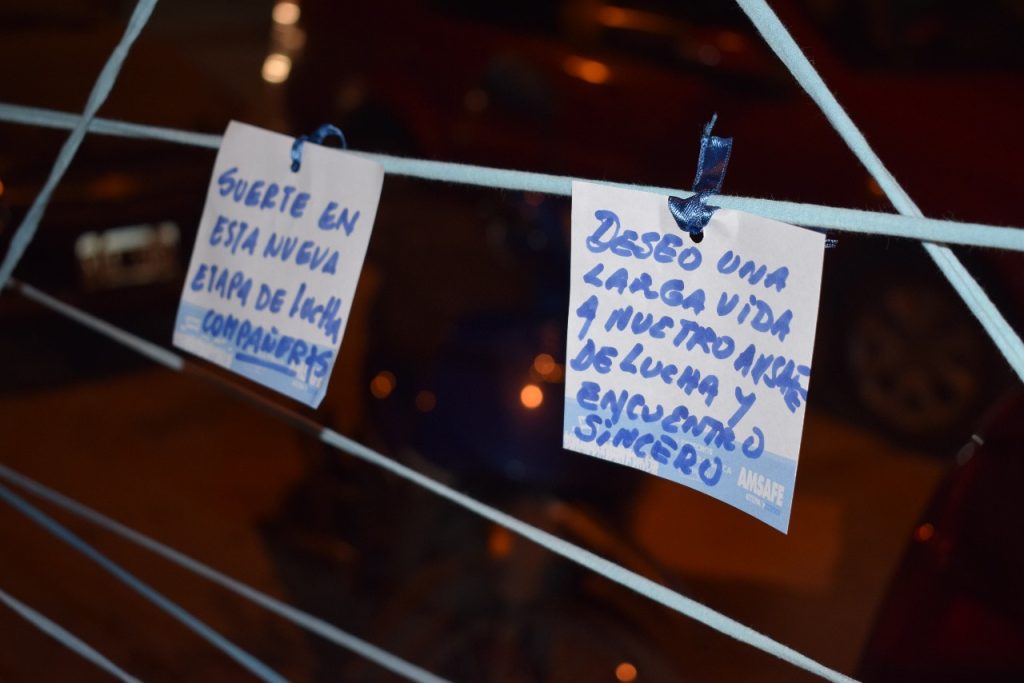 SUERTE EN
ESTA NUEVA
ETAPA DE LUCHA
COMPAÑER@S
DESEO UNA
LARGA VIDA
A NUETRO AMSAFE
DE LUCHA Y
ENCUENTRO
SINCERO
AMSAFE